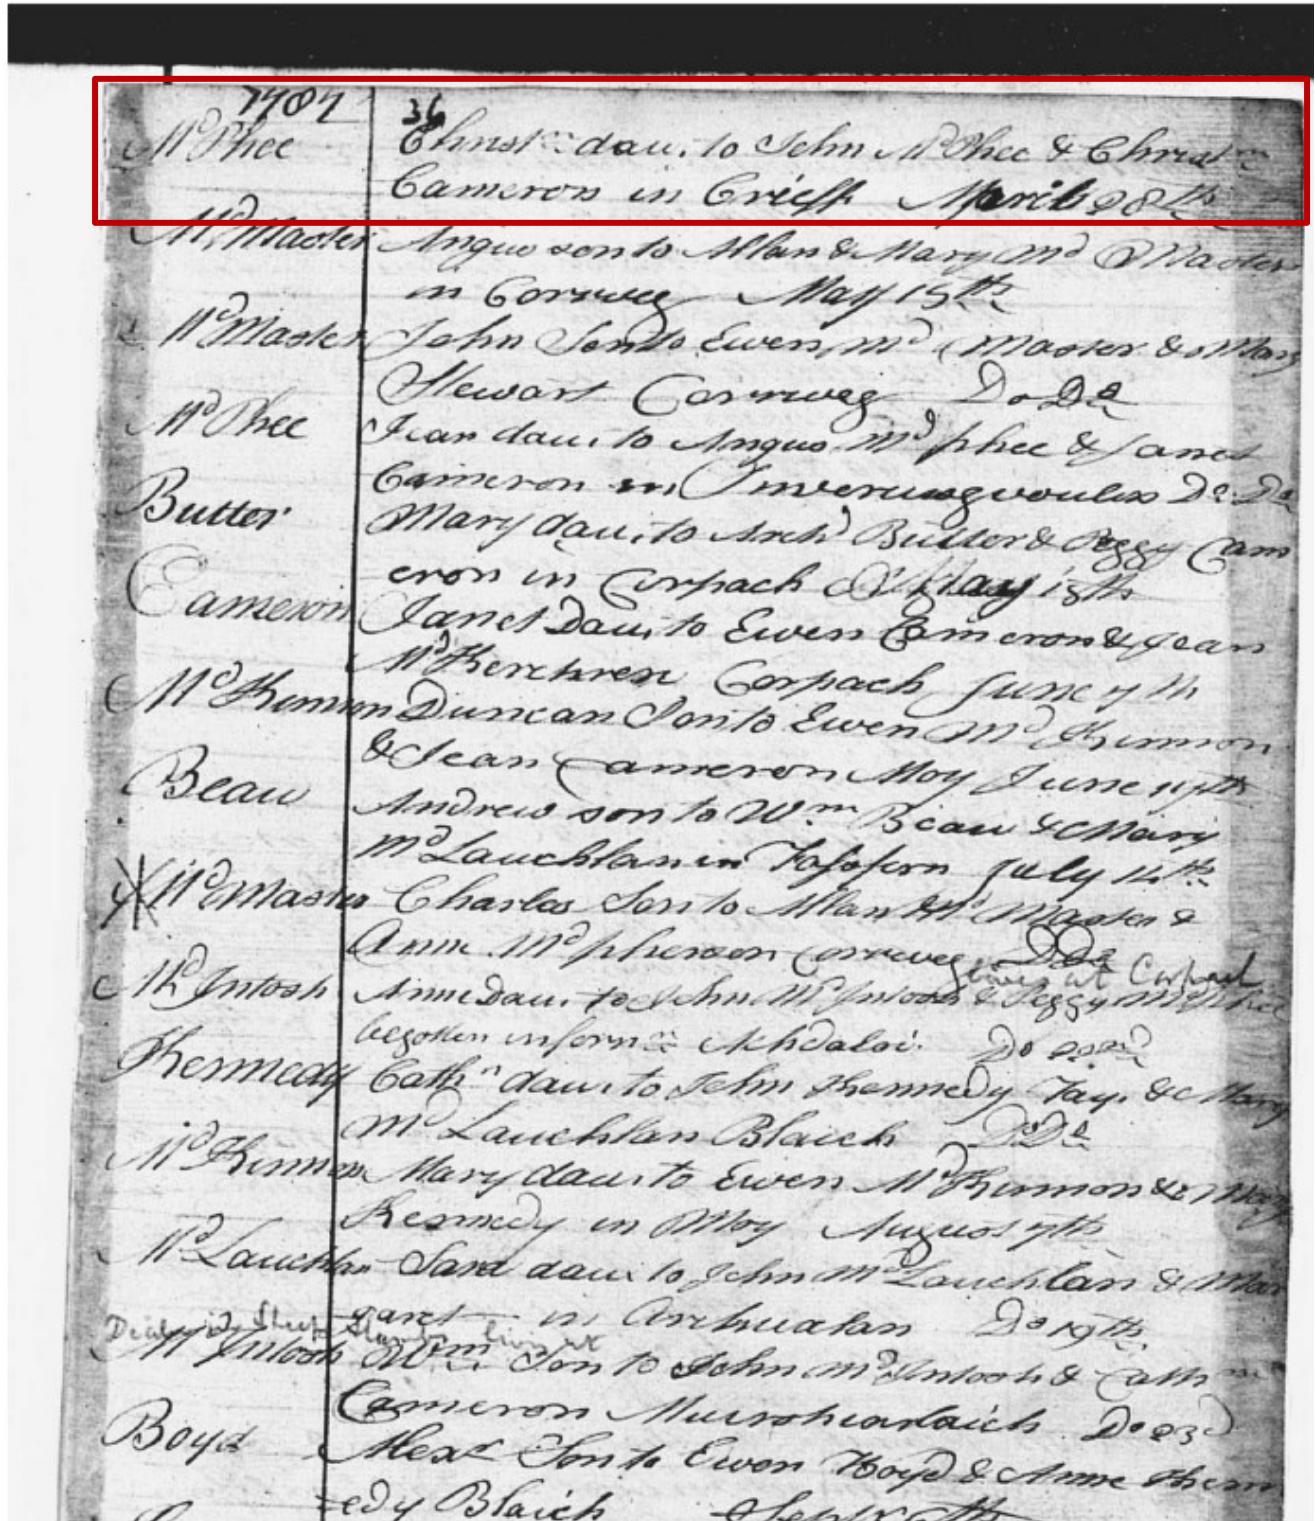 1787 36
McPhee Christn dau. to John McPhee & Christn
Cameron in Crieff April 28th
McMaster Angus son to Allan & Mary Mc Master
in Corrweg May 15th
McMaster John Son to Ewen Mc Master & Mary
Stewart Corrweg Do Do
McPhee Jean dau. to Angus Mc phee & Janet
Cameron in Do Do
Butter Mary dau. to Archd Butter & Peggy Cam
eron in Corpach May 18th
Cameron Janet Dau. to Ewen Cameron & Jean
Corpach June 7th
McKinnon Duncan Son to Ewen Mc Kinnon
& Jean Cameron Moy June
Beau Andrew son to Wm Beau & Mary
McLauchlan in Fassfern July 14th
McMaster Charles Son to Allan Mc Master &
Ann Mcpherson Corrweg Do Do
lives at Corpach
McIntosh Anne Dau. to John McIntosh & Peggy McPhee
begotten in fornn Achdaloi Do 22nd
Kennedy Cathn dau. to John Kennedy Tay. & Mary
McLauchlan Blaich Do Do
McKinnon Mary dau. to Ewen McKinnon & Mary
Kennedy in Moy August 7th
McLauchlan Sara dau. to John McLauchlan & Mar
garet in Do 19th
lives at
McIntosh Wm Son to John McIntosh & Cathn
Cameron Muirshearlaich Do 23d
Boyd Alexr Son to Ewen Boyd & Anne Kenn
edy Blaich Septr